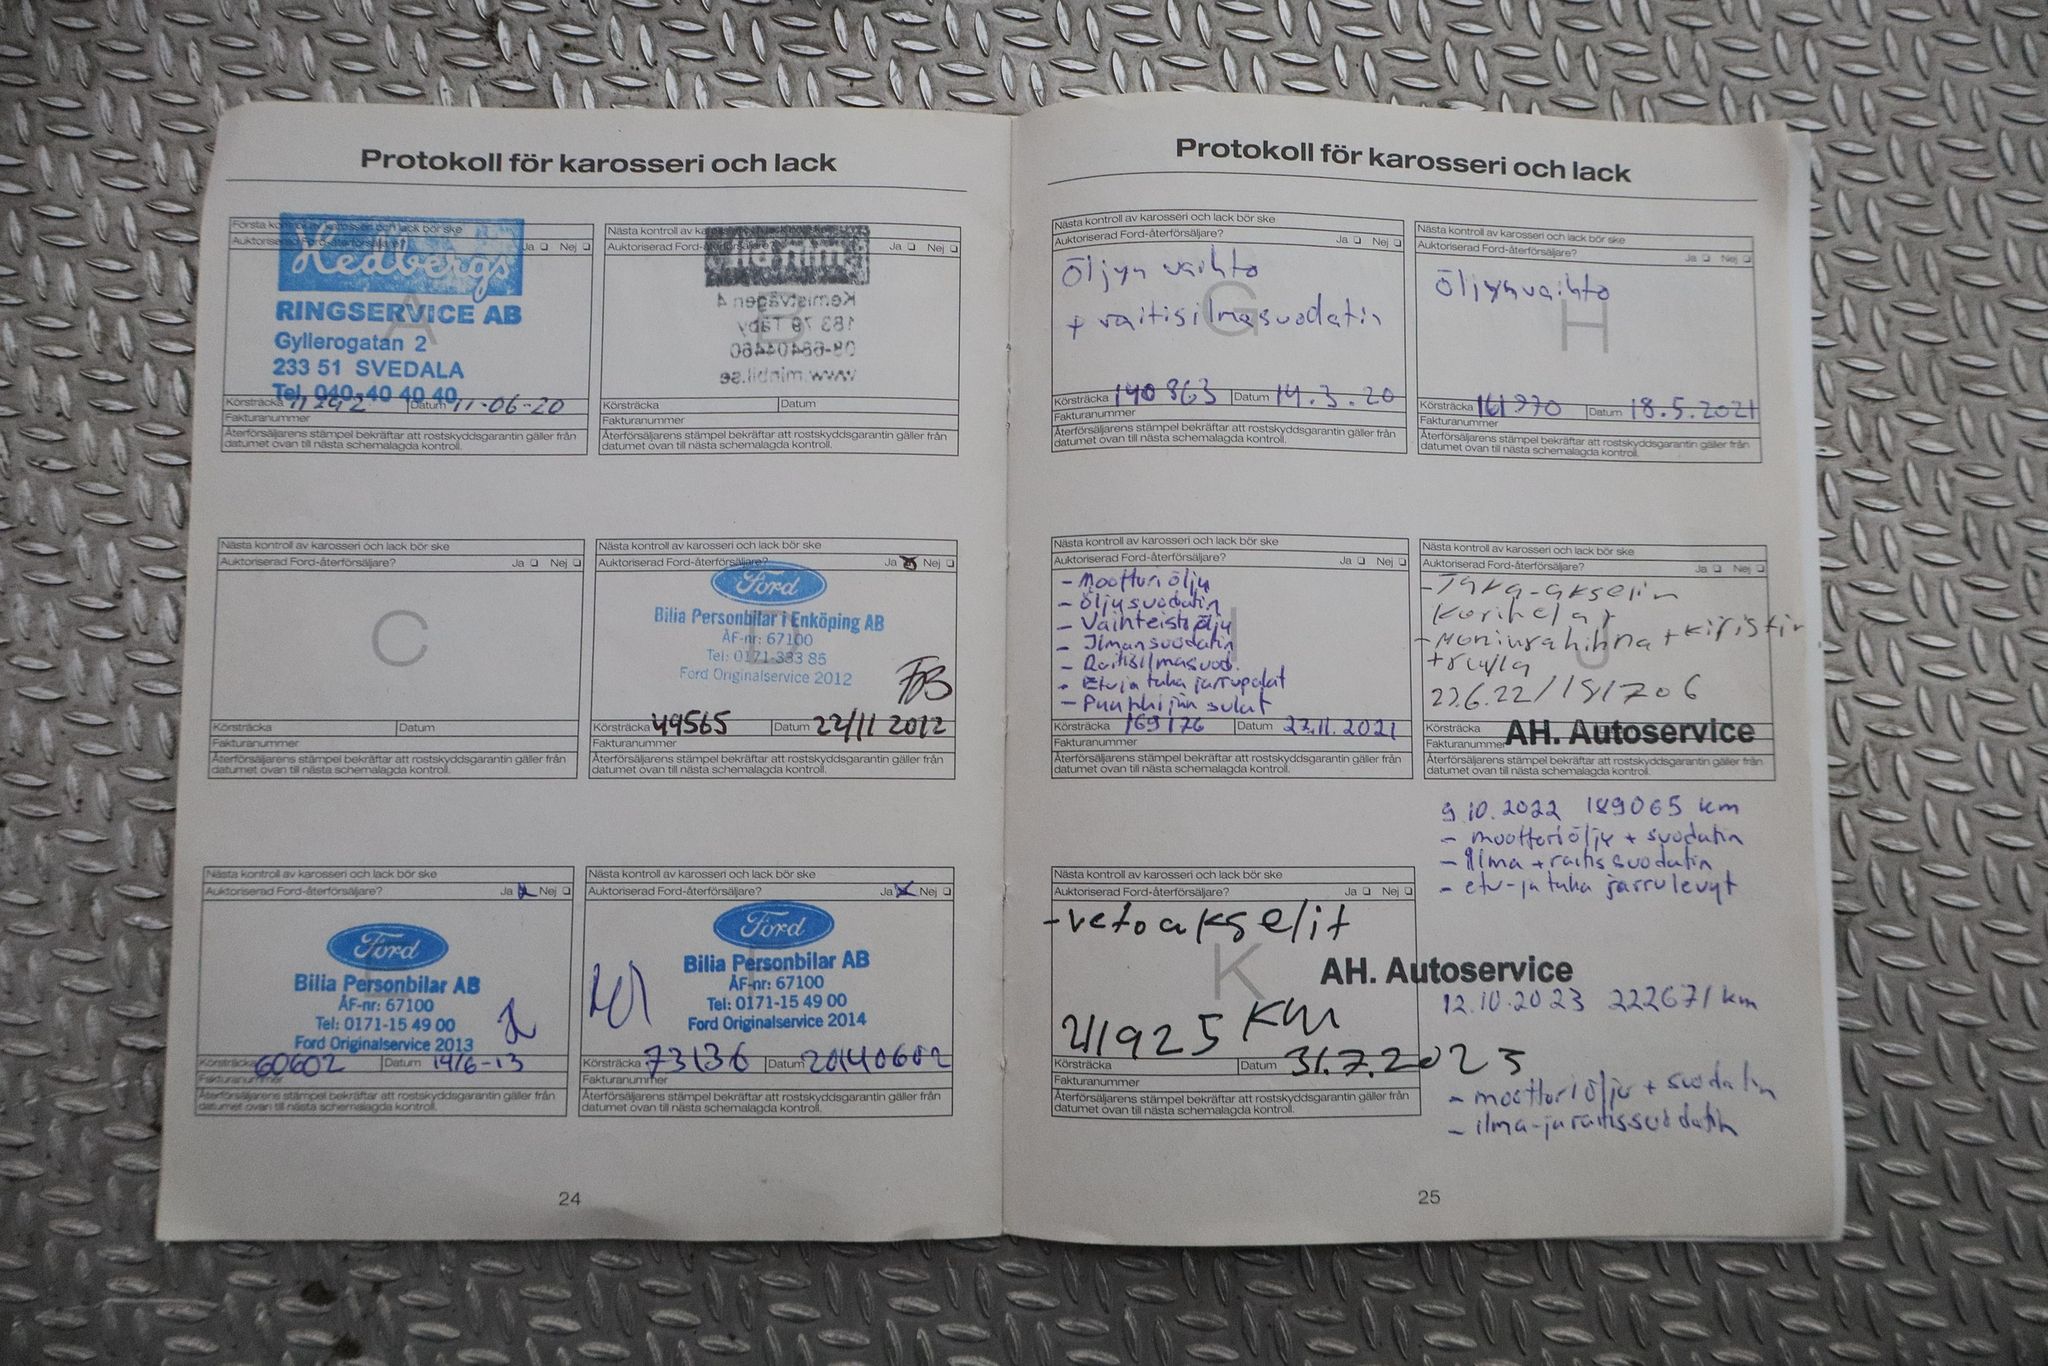 Protokoll för karosseri och lack
Första kontroll av karosseri och lack bör ske
Auktoriserad Ford-återförsäljare? Ja Nej
Hedbergs
RINGSERVICE AB
Gyllerogatan 2
233 51 SVEDALA
Tel 040-40 40 40
A
Körsträcka 11292 Datum 11-06-20
Fakturanummer
Återförsäljarens stämpel bekräftar att rostskyddsgarantin gäller från
datumet ovan till nästa schemalagda kontroll.
Nästa kontroll av karosseri och lack bör ske
Auktoriserad Ford-återförsäljare? Ja Nej
Kemistvägen 4
183 79 Täby
08-68404460
www.minbil.se
B
Körsträcka Datum
Fakturanummer
Återförsäljarens stämpel bekräftar att rostskyddsgarantin gäller från
datumet ovan till nästa schemalagda kontroll.
Nästa kontroll av karosseri och lack bör ske
Auktoriserad Ford-återförsäljare? Ja Nej
C
Körsträcka Datum
Fakturanummer
Återförsäljarens stämpel bekräftar att rostskyddsgarantin gäller från
datumet ovan till nästa schemalagda kontroll.
Nästa kontroll av karosseri och lack bör ske
Auktoriserad Ford-återförsäljare? Ja Nej
Ford
Bilia Personbilar i Enköping AB
ÅF-nr: 67100
Tel: 0171-333 85
Ford Originalservice 2012
D
Körsträcka 49565 Datum 22/11 2012
Fakturanummer
Återförsäljarens stämpel bekräftar att rostskyddsgarantin gäller från
datumet ovan till nästa schemalagda kontroll.
Nästa kontroll av karosseri och lack bör ske
Auktoriserad Ford-återförsäljare? Ja Nej
Ford
Bilia Personbilar AB
ÅF-nr: 67100
Tel: 0171-15 49 00
Ford Originalservice 2013
Körsträcka 60602 Datum 19/6-13
Fakturanummer
Återförsäljarens stämpel bekräftar att rostskyddsgarantin gäller från
datumet ovan till nästa schemalagda kontroll.
Nästa kontroll av karosseri och lack bör ske
Auktoriserad Ford-återförsäljare? Ja Nej
Ford
Bilia Personbilar AB
ÅF-nr: 67100
Tel: 0171-15 49 00
Ford Originalservice 2014
Körsträcka 73136 Datum 20140602
Fakturanummer
Återförsäljarens stämpel bekräftar att rostskyddsgarantin gäller från
datumet ovan till nästa schemalagda kontroll.
24
Protokoll för karosseri och lack
Nästa kontroll av karosseri och lack bör ske
Auktoriserad Ford-återförsäljare? Ja Nej
Öljyn vaihto
+ raitisilmasuodatin
G
Körsträcka 140863 Datum 14.3.20
Fakturanummer
Återförsäljarens stämpel bekräftar att rostskyddsgarantin gäller från
datumet ovan till nästa schemalagda kontroll.
Nästa kontroll av karosseri och lack bör ske
Auktoriserad Ford-återförsäljare? Ja Nej
Öljynvaihto
H
Körsträcka 161970 Datum 18.5.2021
Fakturanummer
Återförsäljarens stämpel bekräftar att rostskyddsgarantin gäller från
datumet ovan till nästa schemalagda kontroll.
Nästa kontroll av karosseri och lack bör ske
Auktoriserad Ford-återförsäljare? Ja Nej
- Moottoriöljy
- Öljysuodatin
- Vaihteistoöljy
- Ilmansuodatin
- Raitisilmasuod.
- Etu ja taka jarrupalat
- Puuphijän sulat
I
Körsträcka 169176 Datum 27.11.2021
Fakturanummer
Återförsäljarens stämpel bekräftar att rostskyddsgarantin gäller från
datumet ovan till nästa schemalagda kontroll.
Nästa kontroll av karosseri och lack bör ske
Auktoriserad Ford-återförsäljare? Ja Nej
- Taka-akselin
korihelat
- Moniurahihna + kiristin
+ rulla
23.6.22/181706
J
Körsträcka
Fakturanummer
AH. Autoservice
Återförsäljarens stämpel bekräftar att rostskyddsgarantin gäller från
datumet ovan till nästa schemalagda kontroll.
9.10.2022 189065 km
- moottoriöljy + suodatin
- Ilma + raitissuodatin
- etu- ja taka jarrulevyt
Nästa kontroll av karosseri och lack bör ske
Auktoriserad Ford-återförsäljare? Ja Nej
- vetoakselit
K
AH. Autoservice
211925 km
Körsträcka Datum 31.7.2023
Fakturanummer
Återförsäljarens stämpel bekräftar att rostskyddsgarantin gäller från
datumet ovan till nästa schemalagda kontroll.
12.10.2023 222671 km
- moottoriöljy + suodatin
- ilma-ja raitissuodatin
25